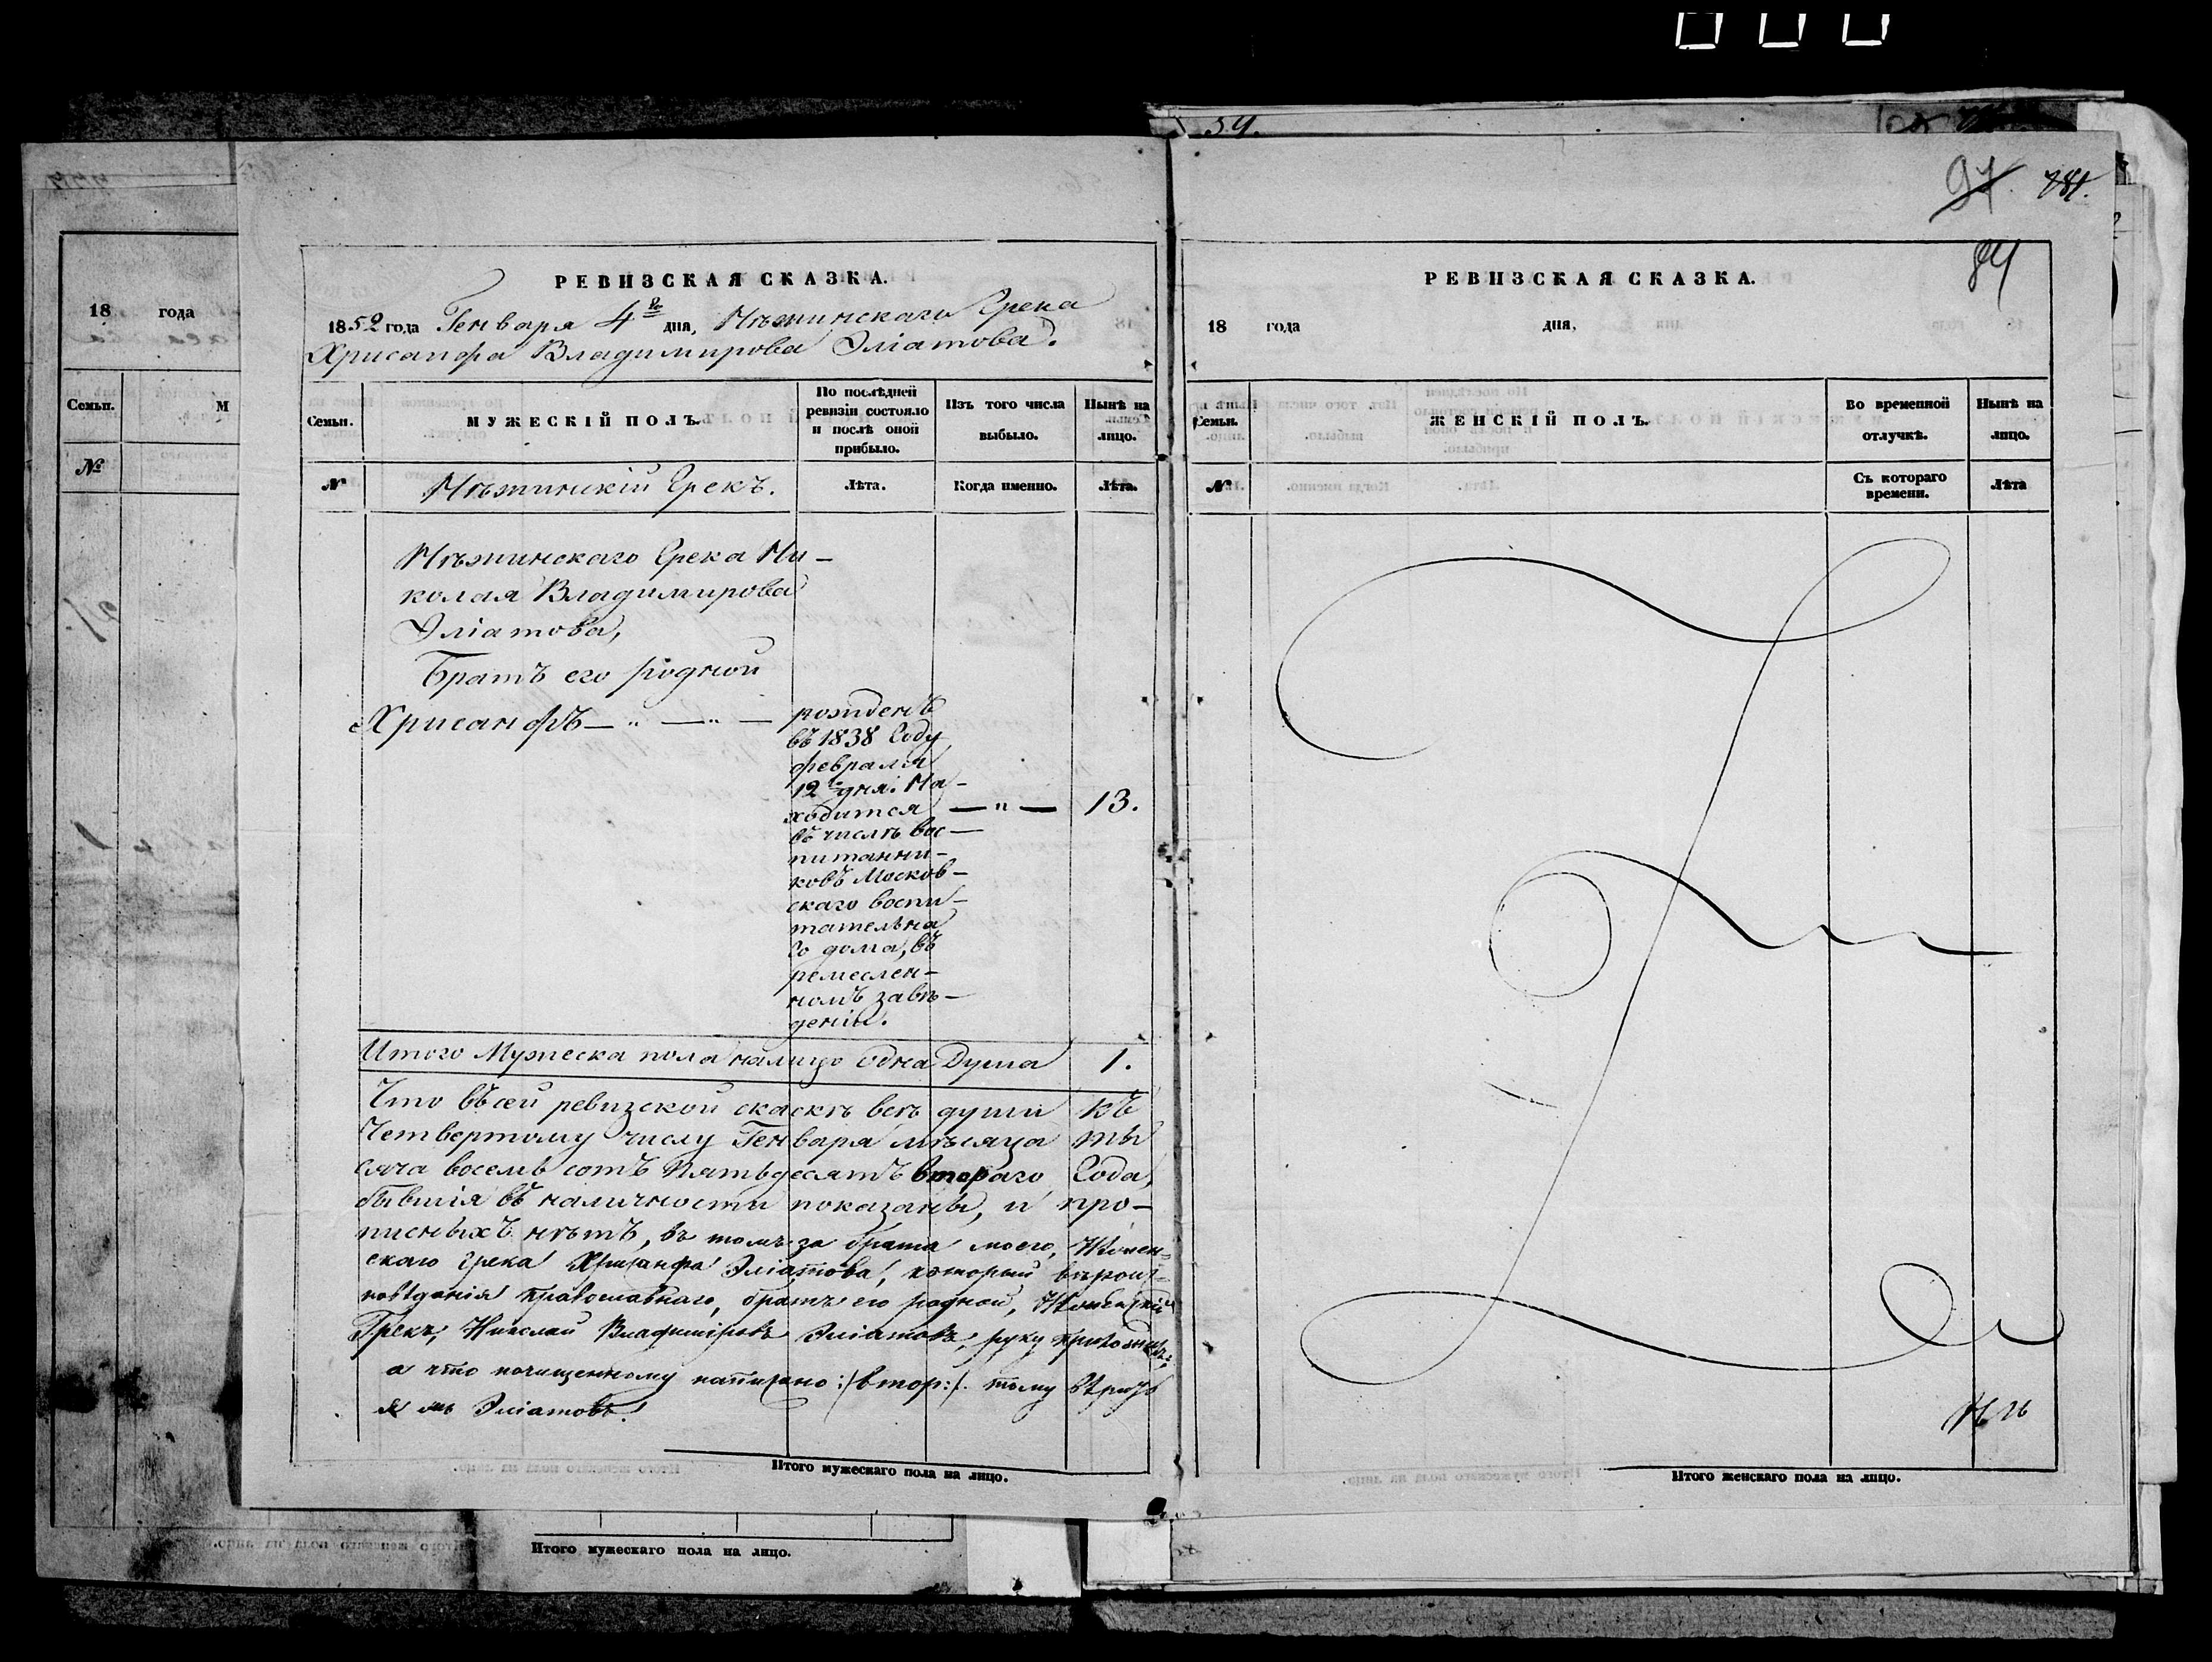 54.
97. 781.
84
18 года
Семьи. М
№
РЕВИЗСКАЯ СКАЗКА.
1852 года Генваря 4го дня, Нѣжинскаго Грека
Хрисанфа Владимирова Эліатова.
Семьи. МУЖЕСКІЙ ПОЛЪ. По послѣдней ревизіи состояло и послѣ оной прибыло. Изъ того числа выбыло. Нынѣ на лицо.
№ Нѣжинскій Грекъ. Лѣта. Когда именно. Лѣта.
Нѣжинскаго Грека Ни-
колая Владимирова
Эліатова,
Братъ его родной
Хрисанфъ — " — " — рожденъ
въ 1838 Году
февраля
12го дня. На-
ходится — " — 13.
въ числѣ вос-
питанни-
ковъ Москов-
скаго воспи-
тательна
го дома, въ
ремеслен-
номъ заве-
деніи.
Итого Мужеска пола налицо одна Душа 1.
Что въ сей ревизской скаскѣ всѣ души къ
Четвертому числу Генваря мѣсяца ты
сяча восемь сотъ Пятьдесятъ втораго Года,
бывшія въ наличности показаны, и про-
писныхъ нѣтъ, въ томъ за брата моего, Нѣжин=
скаго Грека Хрисанфа Эліатова, который вѣроис=
повѣданія православнаго, братъ его родной, Нѣжинскій
Грекъ, Николай Владиміровъ Эліатовъ, руку приложилъ,
а что почищенному написано :/втор:/. тому вѣрить
Эліатовъ.
Итого мужескаго пола на лицо.
РЕВИЗСКАЯ СКАЗКА.
18 года дня,
Семьи. ЖЕНСКІЙ ПОЛЪ. Во временной отлучкѣ. Нынѣ на лицо.
№ Съ котораго времени. Лѣта
Итого женскаго пола на лицо.
Итого мужескаго пола на лицо.